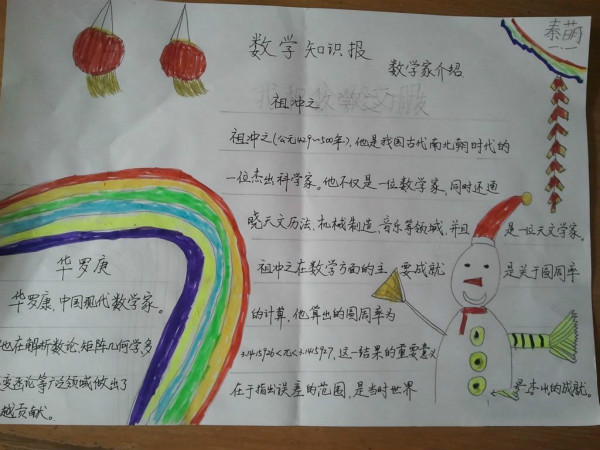 数学知识报
秦萌
数学家介绍
祖冲之
祖冲之(公元429~500年),他是我国古代南北朝时代的
一位杰出科学家。他不仅是一位数学家,同时还通
晓天文历法、机械制造、音乐等领域,并且是一位天文学家。
祖冲之在数学方面的主要成就是关于圆周率
的计算,他算出的圆周率为
3.1415926<π<3.1415927,这一结果的重要意义
在于指出误差的范围,是当时世界是杰出的成就。
华罗庚
华罗庚,中国现代数学家。
他在解析数论,矩阵几何学,多
论等广泛领域做出了
越贡献。